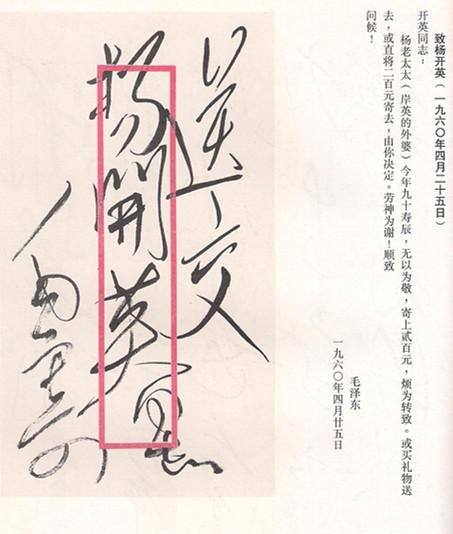 致杨开英(一九六〇年四月二十五日)
开英同志:
杨老太太(岸英的外婆)今年九十寿辰,无以为敬,寄上贰百元,烦为转致。或买礼物送
去,或直将二百元寄去,由你决定。劳神为谢!顺致
问候!
毛泽东
一九六〇年四月廿五日
送交
杨開英同志